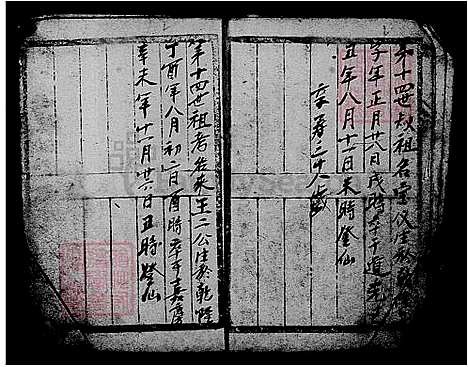 第十四世叔祖名宝仪生於乾隆
子年正月廿八日戌時卒于道光
丑年八月十一日未時登仙
享壽三十八歲
第十四世祖考能來王二公生於乾隆
丁酉年八月初二日酉時卒于嘉慶
辛未年十一月廿六日丑時登仙